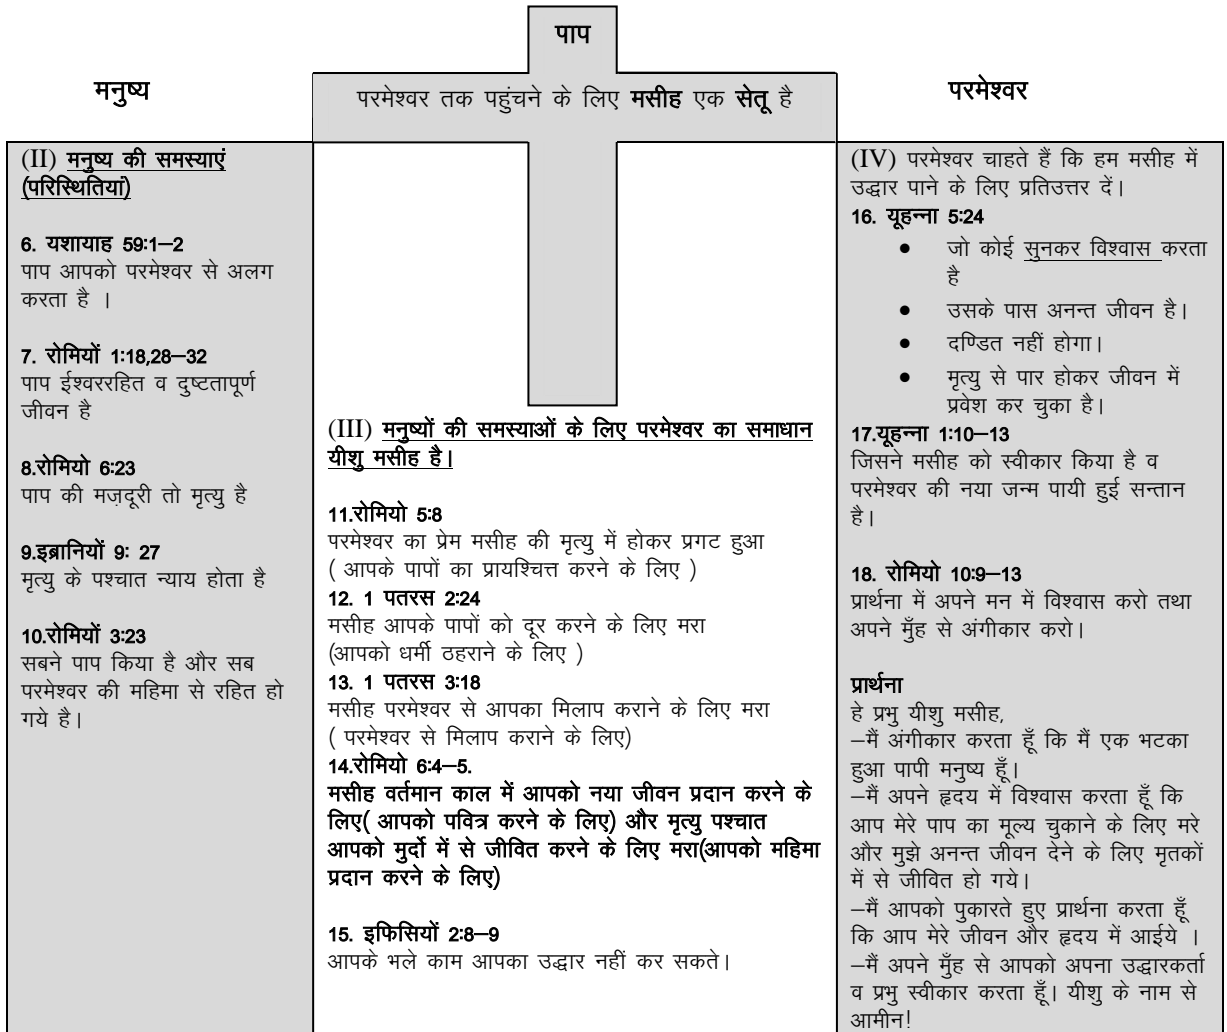 पाप
मनुष्य
परमेश्वर तक पहुंचने के लिए मसीह एक सेतू है
परमेश्वर
(II) मनुष्य की समस्याएं
(परिस्थितियां)
6. यशायाह 59:1–2
पाप आपको परमेश्वर से अलग
करता है ।
7. रोमियों 1:18,28–32
पाप ईश्वररहित व दुष्टतापूर्ण
जीवन है
8.रोमियो 6:23
पाप की मज़दूरी तो मृत्यु है
9.इब्रानियों 9: 27
मृत्यु के पश्चात न्याय होता है
10.रोमियों 3:23
सबने पाप किया है और सब
परमेश्वर की महिमा से रहित हो
गये है।
(III) मनुष्यों की समस्याओं के लिए परमेश्वर का समाधान
यीशु मसीह है।
11.रोमियो 5:8
परमेश्वर का प्रेम मसीह की मृत्यु में होकर प्रगट हुआ
( आपके पापों का प्रायश्चित्त करने के लिए )
12. 1 पतरस 2:24
मसीह आपके पापों को दूर करने के लिए मरा
(आपको धर्मी ठहराने के लिए )
13. 1 पतरस 3:18
मसीह परमेश्वर से आपका मिलाप कराने के लिए मरा
( परमेश्वर से मिलाप कराने के लिए)
14.रोमियो 6:4–5.
मसीह वर्तमान काल में आपको नया जीवन प्रदान करने के
लिए( आपको पवित्र करने के लिए) और मृत्यु पश्चात
आपको मुर्दो में से जीवित करने के लिए मरा(आपको महिमा
प्रदान करने के लिए)
15. इफिसियों 2:8–9
आपके भले काम आपका उद्धार नहीं कर सकते।
(IV) परमेश्वर चाहते हैं कि हम मसीह में
उद्धार पाने के लिए प्रतिउत्तर दें।
16. यूहन्ना 5:24
• जो कोई सुनकर विश्वास करता
है
• उसके पास अनन्त जीवन है।
• दण्डित नहीं होगा।
• मृत्यु से पार होकर जीवन में
प्रवेश कर चुका है।
17.यूहन्ना 1:10–13
जिसने मसीह को स्वीकार किया है व
परमेश्वर की नया जन्म पायी हुई सन्तान
है।
18. रोमियो 10:9–13
प्रार्थना में अपने मन में विश्वास करो तथा
अपने मुँह से अंगीकार करो।
प्रार्थना
हे प्रभु यीशु मसीह,
–मैं अंगीकार करता हूँ कि मैं एक भटका
हुआ पापी मनुष्य हूँ।
–मैं अपने हृदय में विश्वास करता हूँ कि
आप मेरे पाप का मूल्य चुकाने के लिए मरे
और मुझे अनन्त जीवन देने के लिए मृतकों
में से जीवित हो गये।
–मैं आपको पुकारते हुए प्रार्थना करता हूँ
कि आप मेरे जीवन और हृदय में आईये ।
–मैं अपने मुँह से आपको अपना उद्धारकर्ता
व प्रभु स्वीकार करता हूँ। यीशु के नाम से
आमीन!